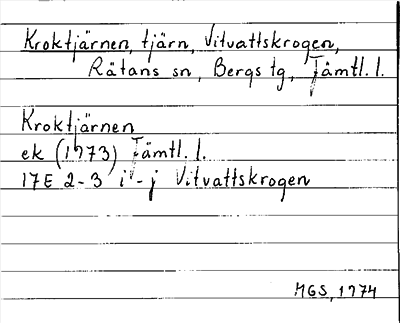 Kroktjärnen, tjärn, Vitvattskrogen,
Rätans sn, Bergs tg, Jämtl. l.
Kroktjärnen
ek (1973) Jämtl. l.
17E 2-3 i-j Vitvattskrogen
MGS, 1974